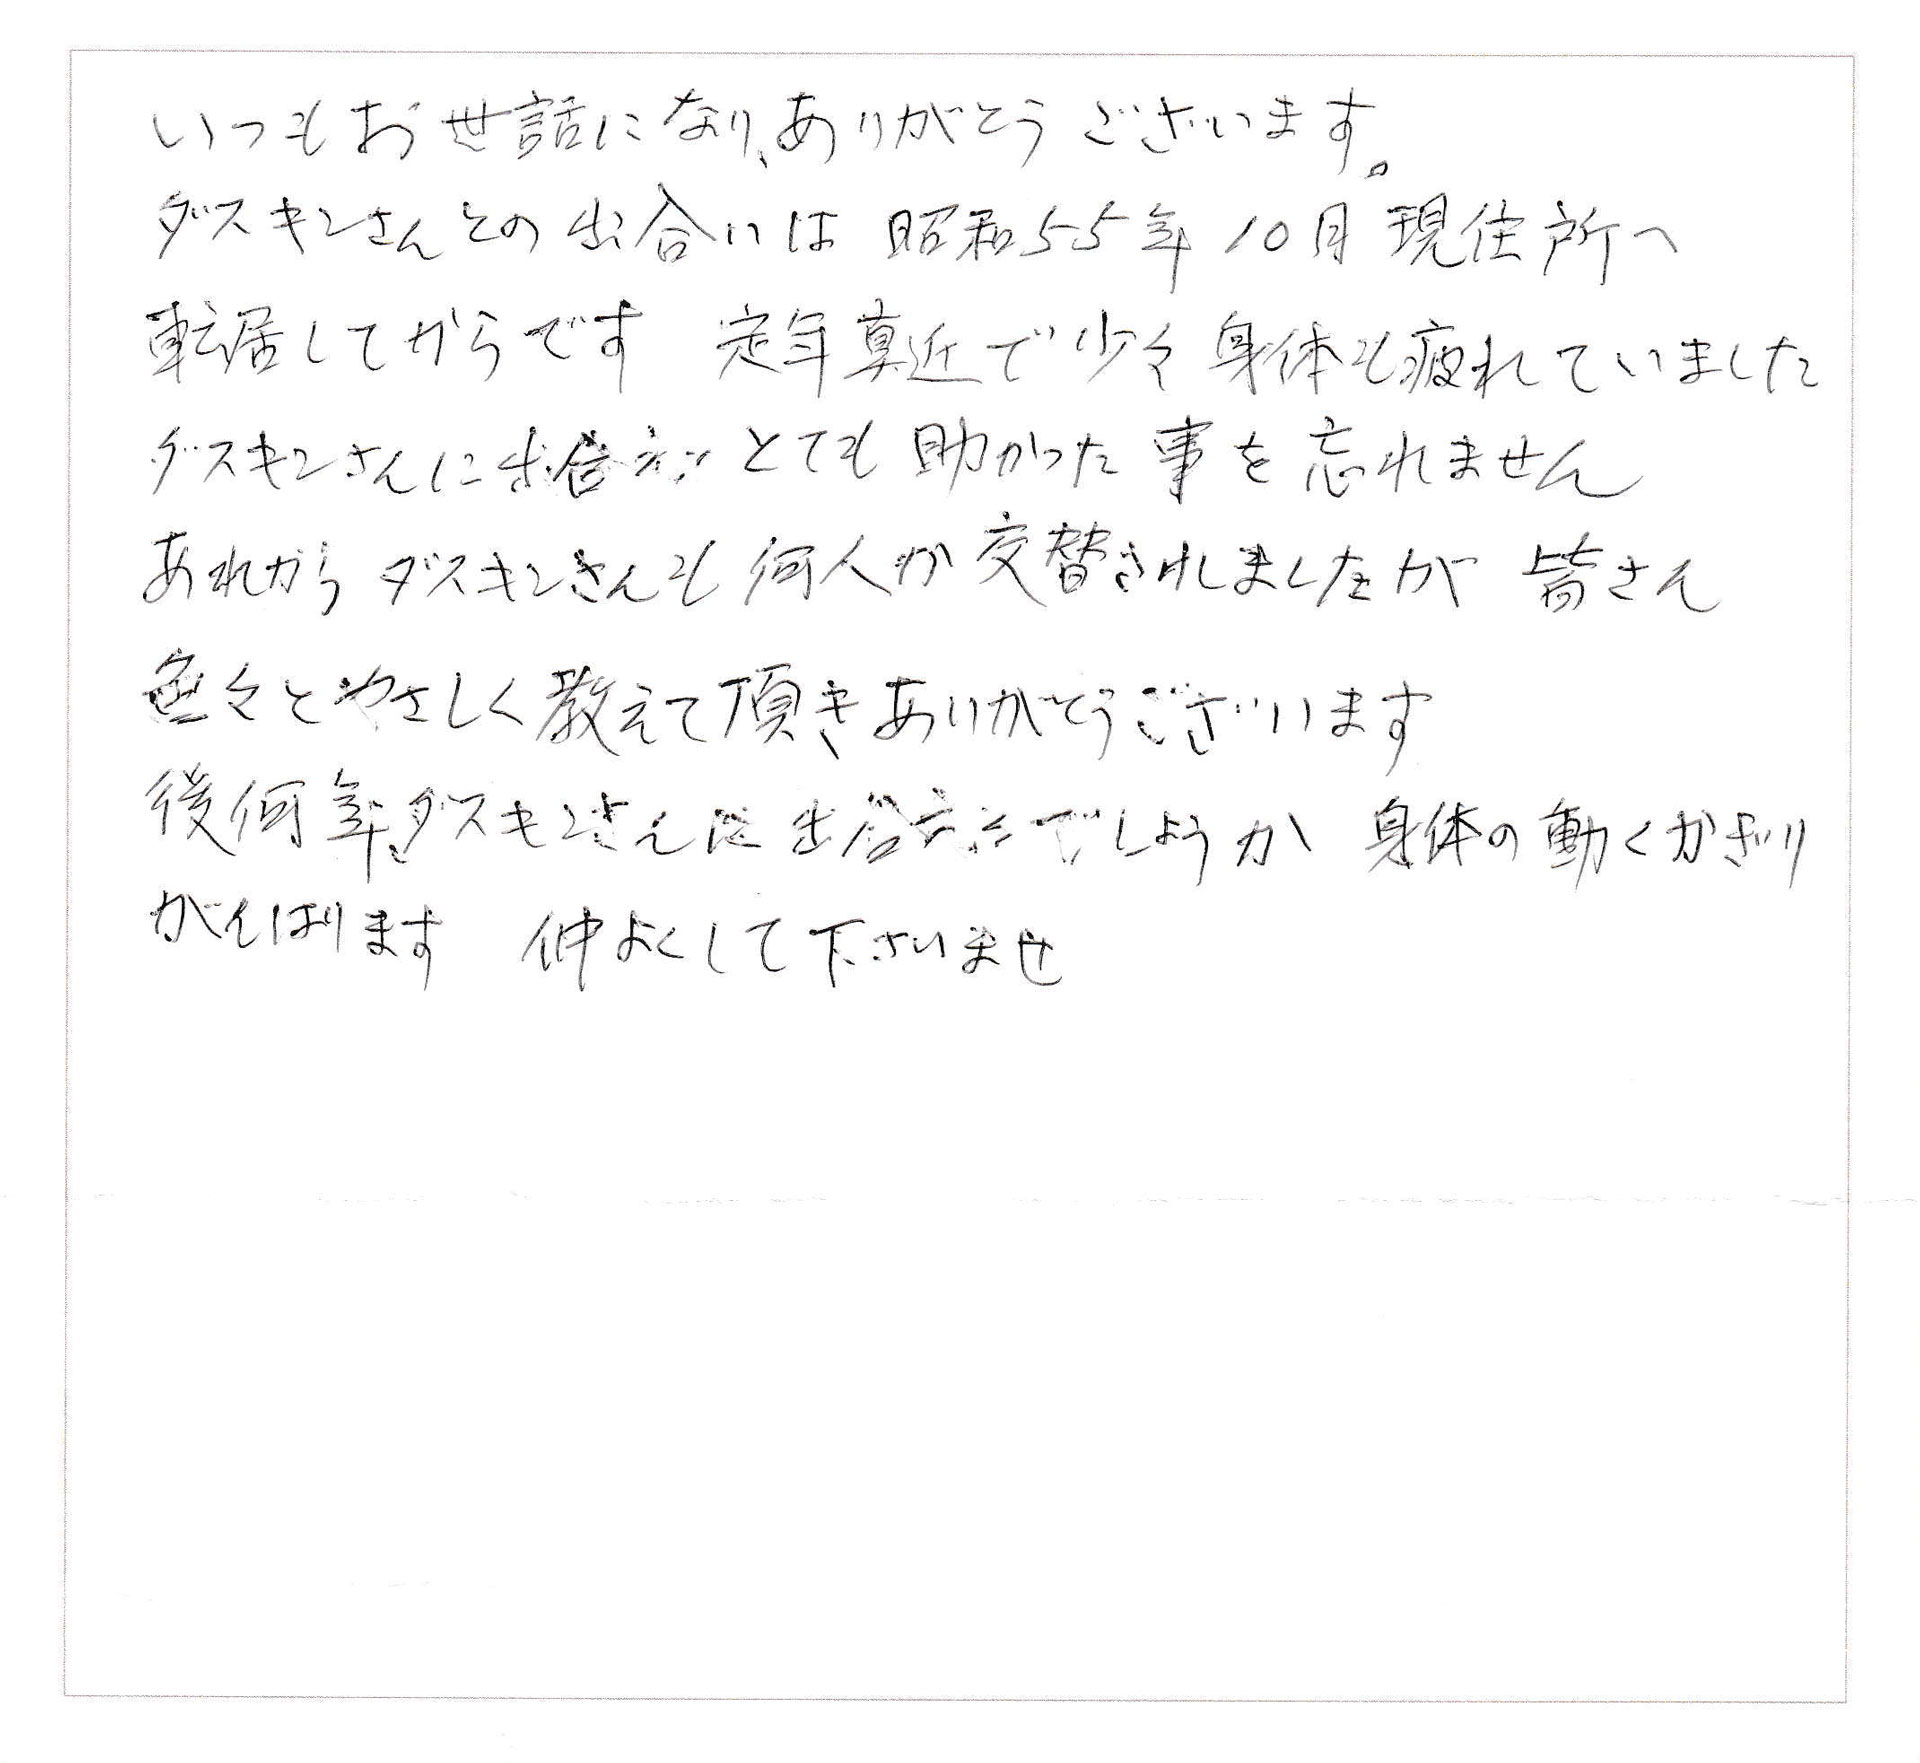 いつもお世話になり、ありがとうございます。
ダスキンさんとの出合いは 昭和55年10月 現住所へ
転居してからです 定年真近で少々身体も疲れていました
ダスキンさんに出合えとても助かった事を忘れません
あれからダスキンさんも何人か交替されましたが 皆さん
色々とやさしく教えて頂きありがとうございます
後何年ダスキンさんに出合えるでしょうか 身体の動くかぎり
がんばります 仲よくして下さいませ